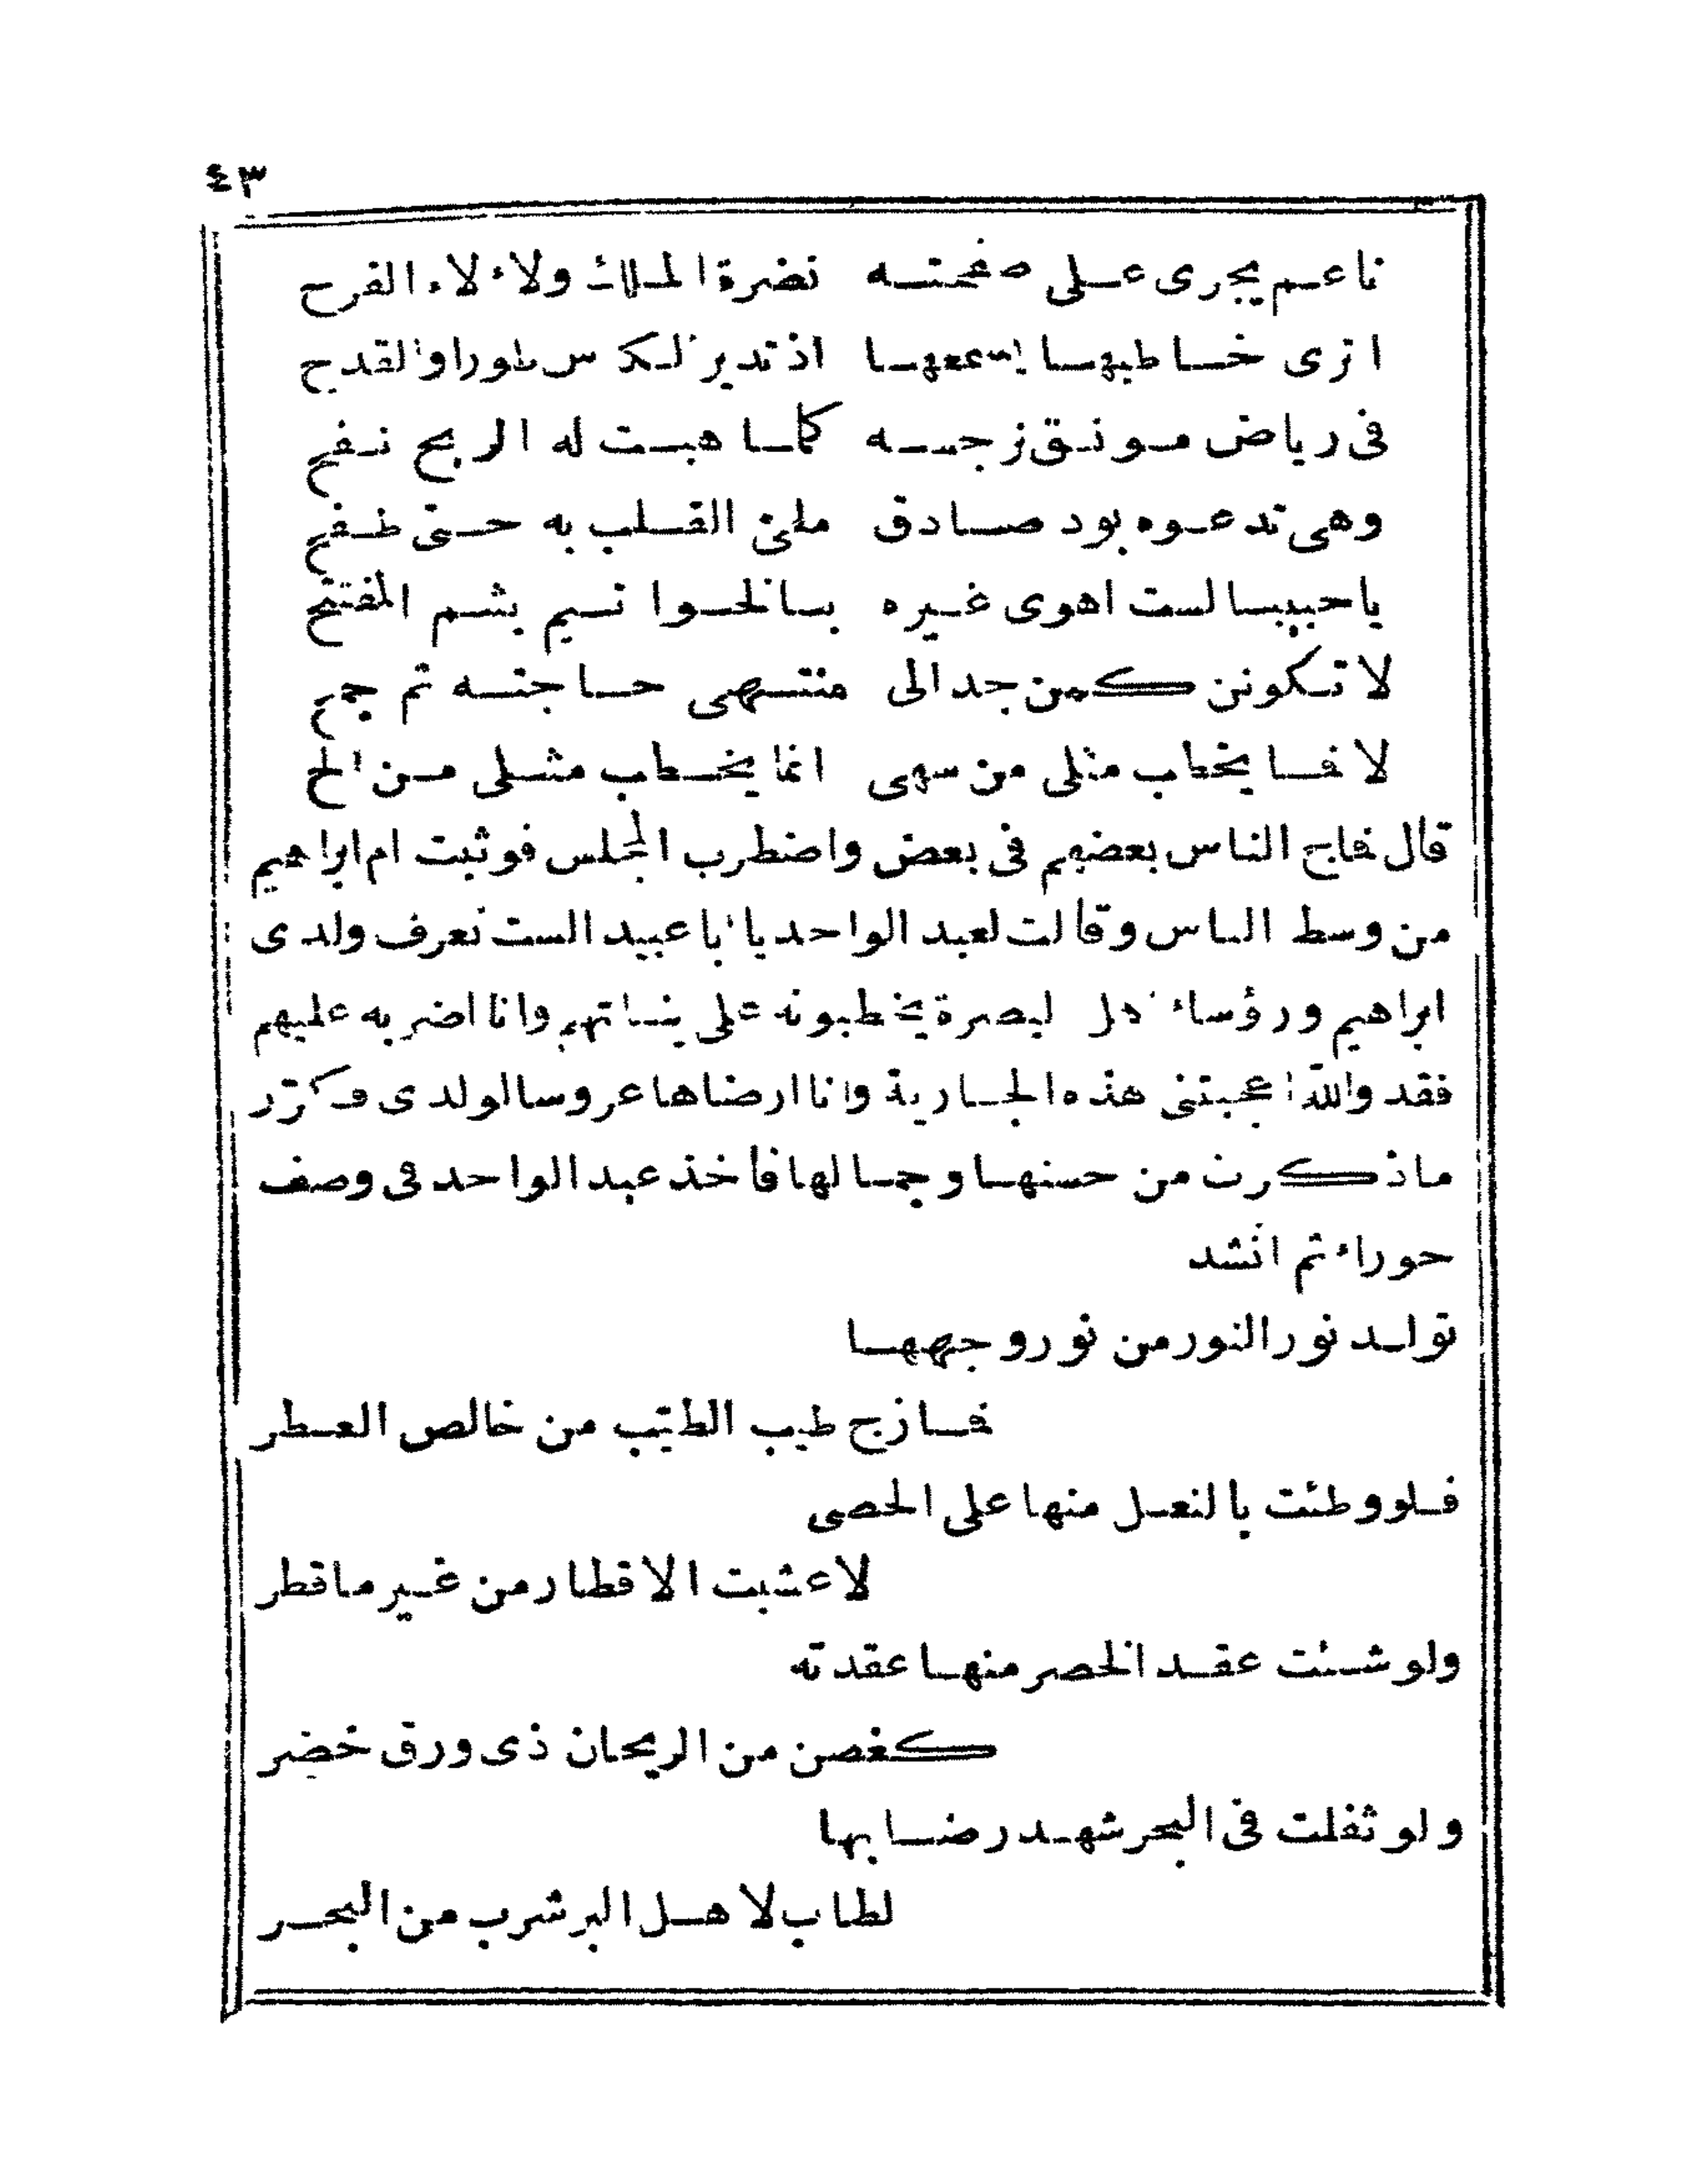 ٤٣
ناعم يجرى على صفحته نضرة الملك ولألاء الفرح
اترى خاطبها يسمعها اذ تدير الكاس طورا والقدح
فى رياض مونق نرجسه كلما هبت له الريح نفح
وهى تدعوه بود صادق ملئ القلب به حتى طفح
ياحبيبا لست اهوى غيره بالخواتيم يتم المفتتح
لا تكونن كمن جد الى منتهى حاجته ثم جمح
لا فما يخطب مثلى من سهى انما يخطب مثلى من الح
قال فماج الناس بعضهم فى بعض واضطرب المجلس فوثبت ام ابراهيم
من وسط الناس وقالت لعبد الواحد يا ابا عبيد الست تعرف ولدى
ابراهيم ورؤساء اهل البصرة يخطبونه على بناتهم وانا اضن به عليهم
فقد والله اعجبتنى هذه الجارية وانا ارضاها عروسا لولدى فكرر
ماذكرت من حسنها وجمالها فأخذ عبد الواحد فى وصف
حوراء ثم انشد
تولد نور النور من نور وجهها
فمازج طيب الطيّب من خالص العطر
فلو وطئت بالنعل منها على الحصى
لاعشبت الاقطار من غير ماقطر
ولو شئت عقد الخصر منها عقدته
كغصن من الريحان ذى ورق خضر
ولو ثفلت فى البحر شهد رضابها
لطاب لاهل البر شرب من البحر